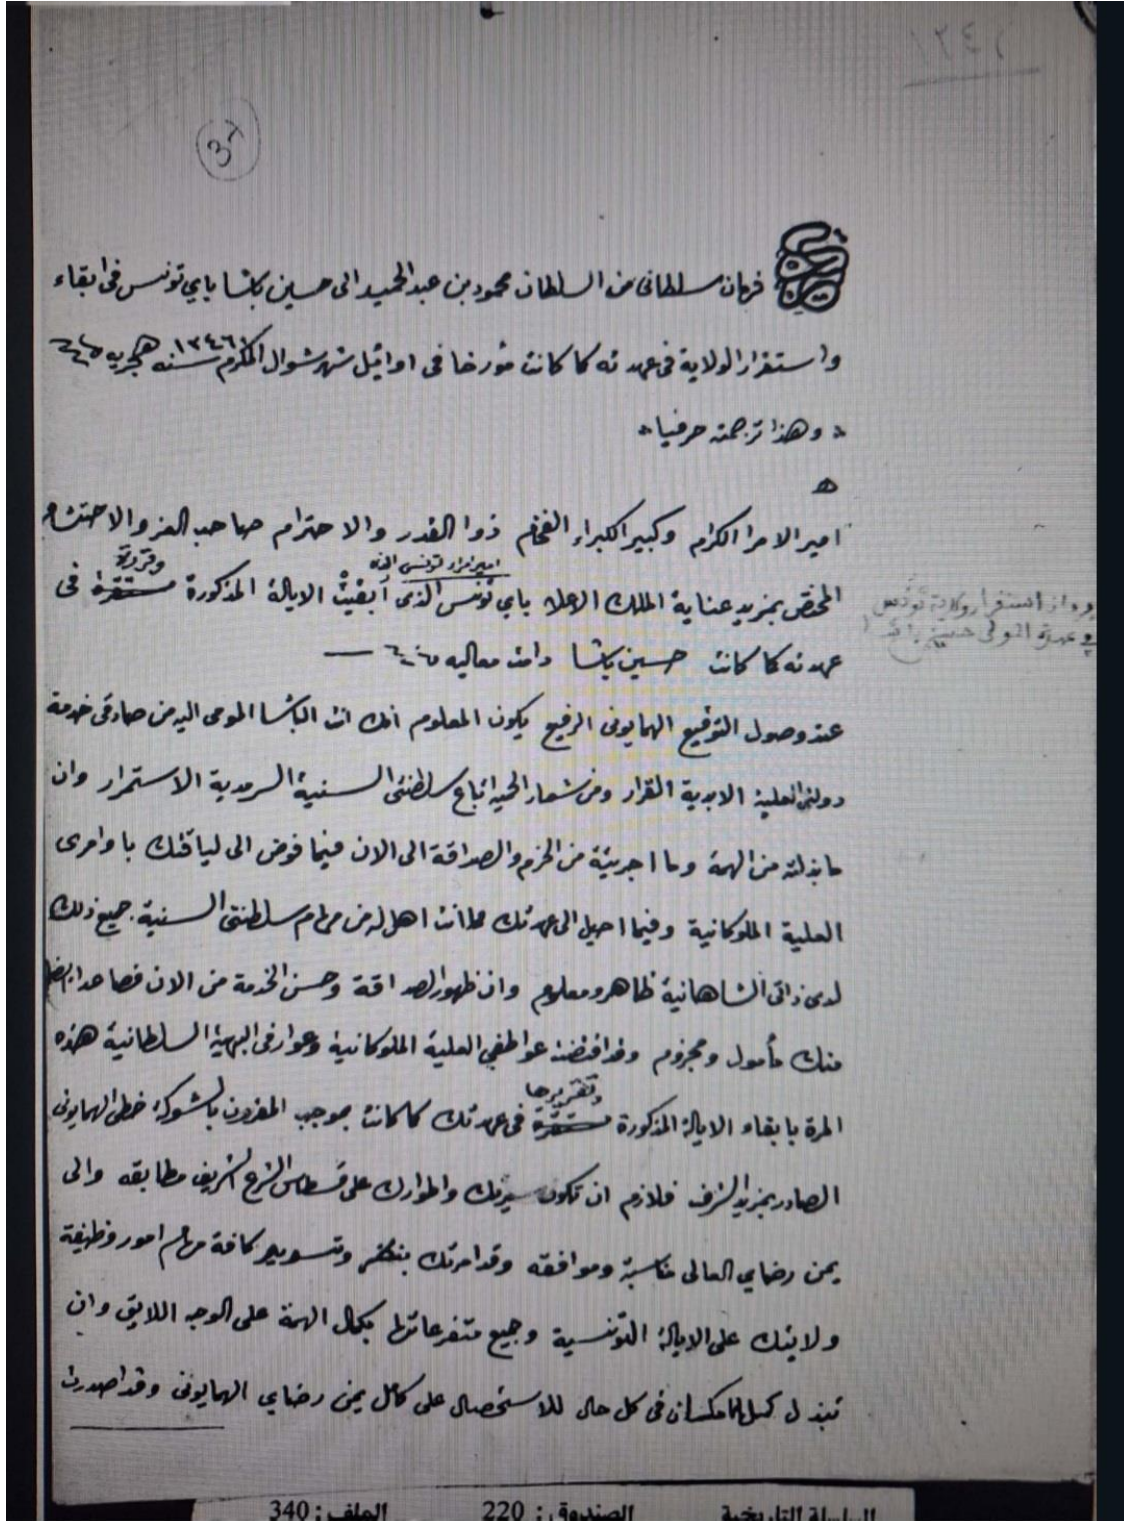 ١٢٤٦
37
فرمان سلطانى من السلطان محمود بن عبد الحميد الى حسين باشا باي تونس فى ابقاء
واستقرار الولاية فى عهدته كما كانت مورخا فى اوائيل شهر شوال المكرم سنه ١٢٤٦ هجريه
وهذا ترجمته حرفيا
امير الامرا الكرام وكبير الكبراء الفخام ذوا القدر والاحترام صاحب العز والاحتشام
امير امراء تونس الذى وقررت
المختص بمزيد عناية الملك الاعلا باي تونس الذى أبقيتُ الايالة المذكورة مستقرة فى
عهدته كما كانت حسين باشا دامت معاليه
عند وصول التوقيع الهمايونى الرفيع يكون المعلوم انك انت الباشا المومى اليه من صادقى خدمة
دولتى العلية الابدية القرار ومن شعار الحيه اتباع سلطنتى السنية السرمدية الاستمرار وان
ما بذلته من الهمة وما اجريته من الحزم والصداقة الى الان فيما فوض الى لياقتك باوامرى
العلية الملوكانية وفيما احيل الى عهدتك مما انت اهل له من مهام سلطنتى السنية جميع ذلك
لدى ذاتى الشاهانية ظاهر ومعلوم وان ظهور الصداقة وحسن الخدمة من الان فصاعدا ايضا
منك مأمول ومجزوم وقد اقتضت عواطفي العلية الملوكانية وعوارفى البهية السلطانية هذه
وتقريرها
المرة بابقاء الايالة المذكورة مستقرة فى عهدتك كما كانت بموجب المقرون بالشوكة خطى الهمايونى
الصادر بمزيد الشرف فلازم ان تكون سيرتك واطوارك على قسطاس الشرع الشريف مطابقه والى
يمن رضاي العالى مناسبة وموافقه وقد امرتك بنظر وتسويه كافة مهام امور وظيفة
ولايتك على الايالة التونسية وجميع متفرعاتها بكمال الهمة على الوجه اللايق وان
تبذل كمال الامكان فى كل حال للاستحصال على كامل يمن رضاي الهمايونى وقد اصدرت
استقرار ولاية تونس
في عهدة المولى حسين باشا
السلسلة التاريخية الصندوق: 220 الملف: 340